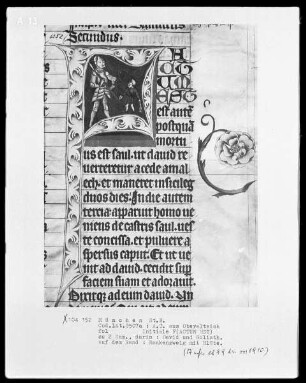 A 12
Secundus.
FAC
TUM
EST
est autē
postquā
mortu
us est saul. ut dauid re
uerteretur a cede amal
ech. et maneret in siceleg
duos dies. In die autem
tercia: apparuit homo ve
niens de castris saul. ueste
conscissa. et puluere a
spersus caput. Et ut ue
nit ad dauid. cecidit sup
faciem suam et adorauit.
Dixitq; ad eum dauid. Vn
X 104 152 München St.B.
Cod.lat.9507a: A.T. aus Oberalteich
fol Initiale F(ACTUM EST)
zu 2 Kön., darin: David und Goliath,
auf dem Rand: Rankenzweig mit Blüte.